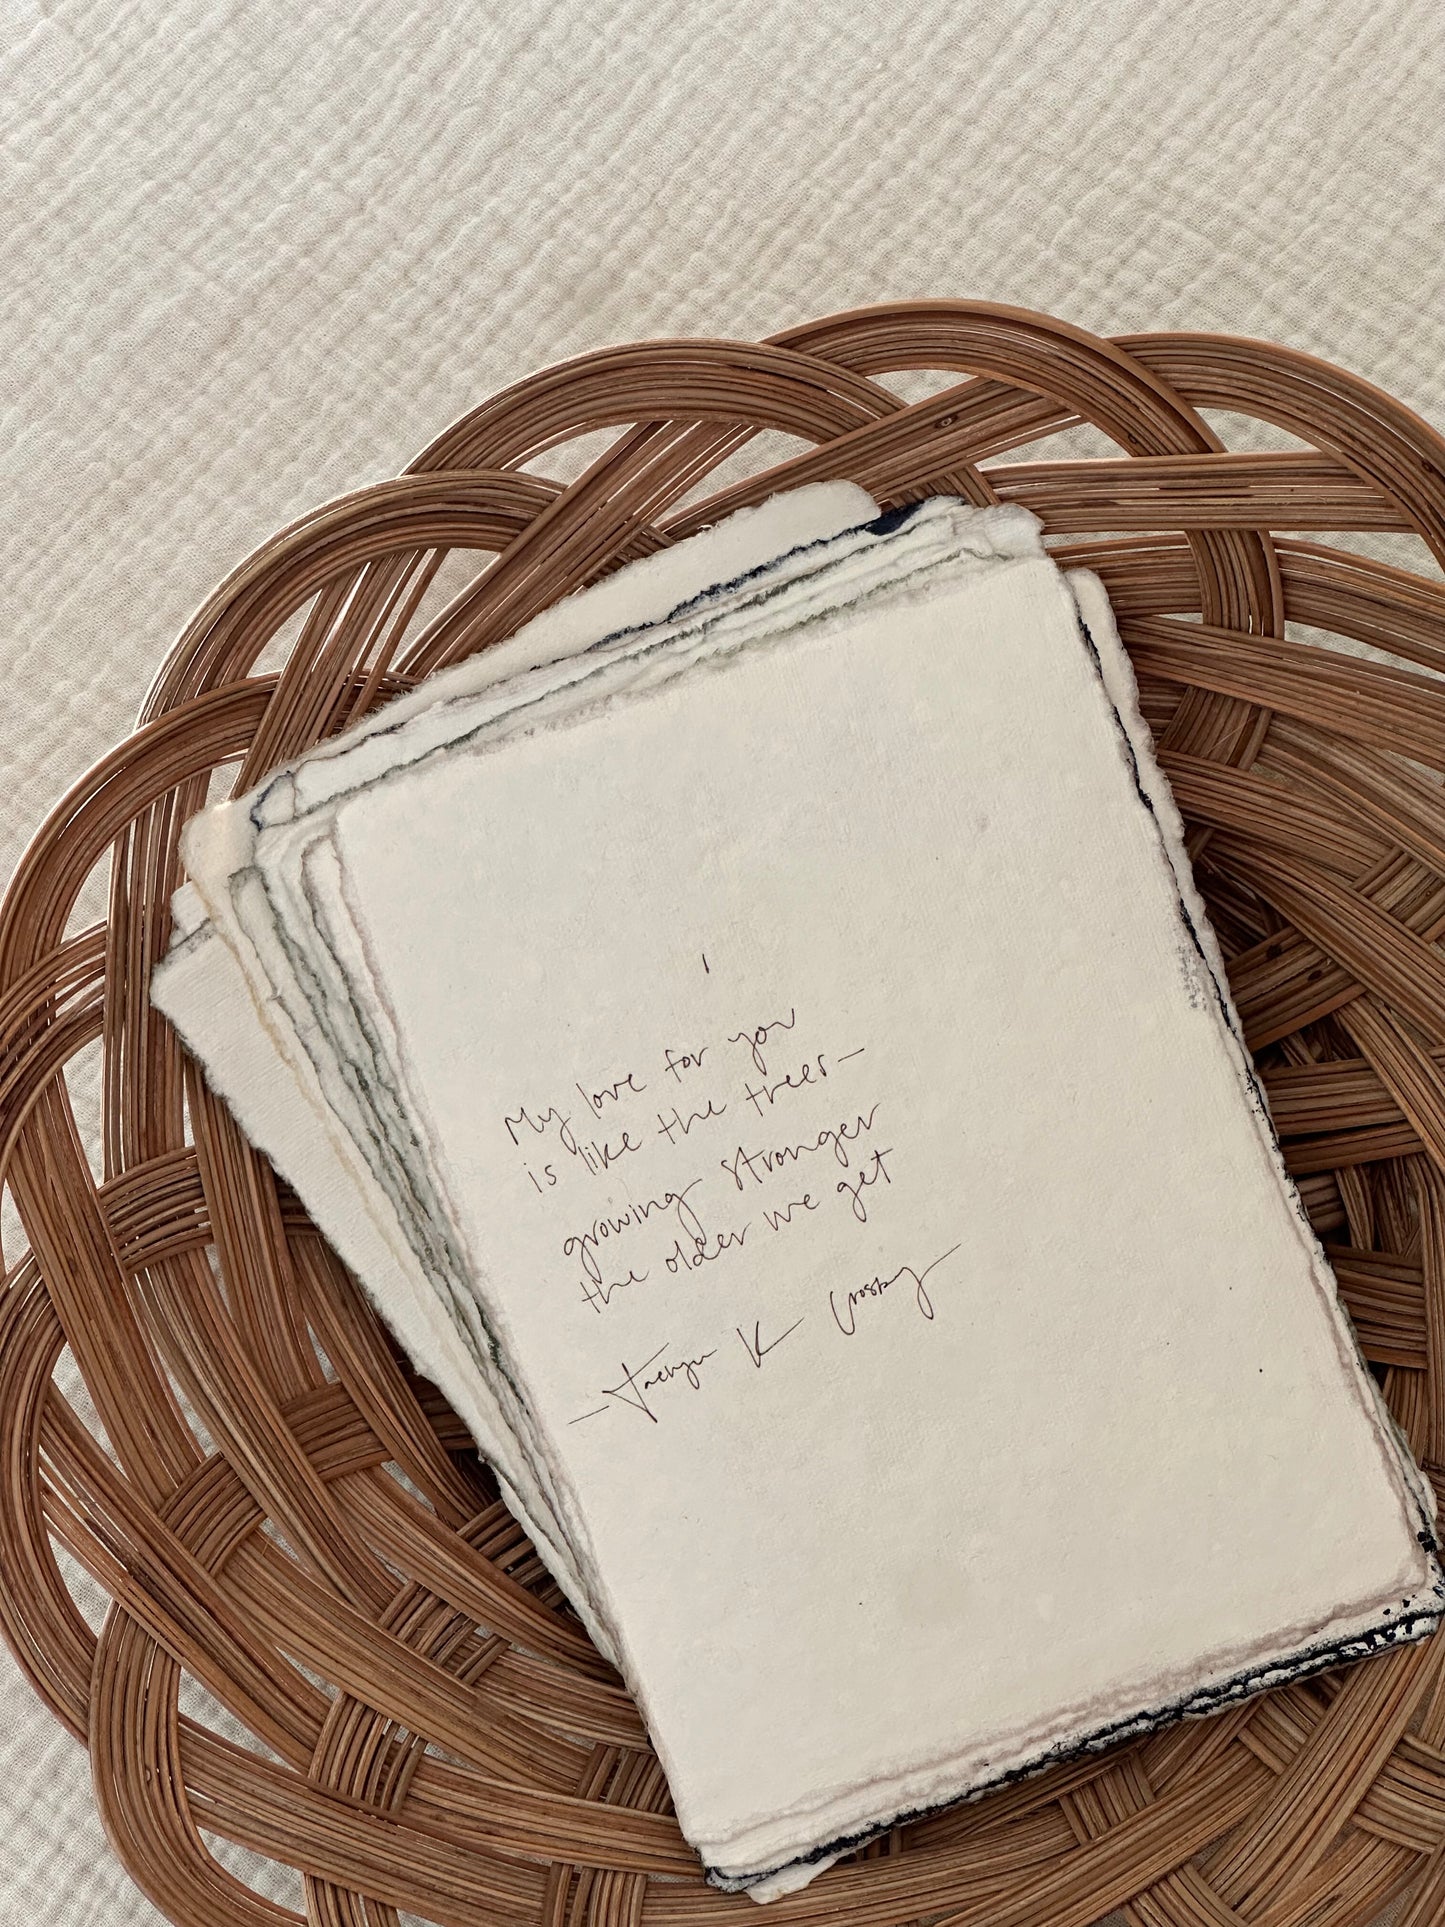 My love for you
is like the trees—
growing stronger
the older we get
— Taevyn K Crosby